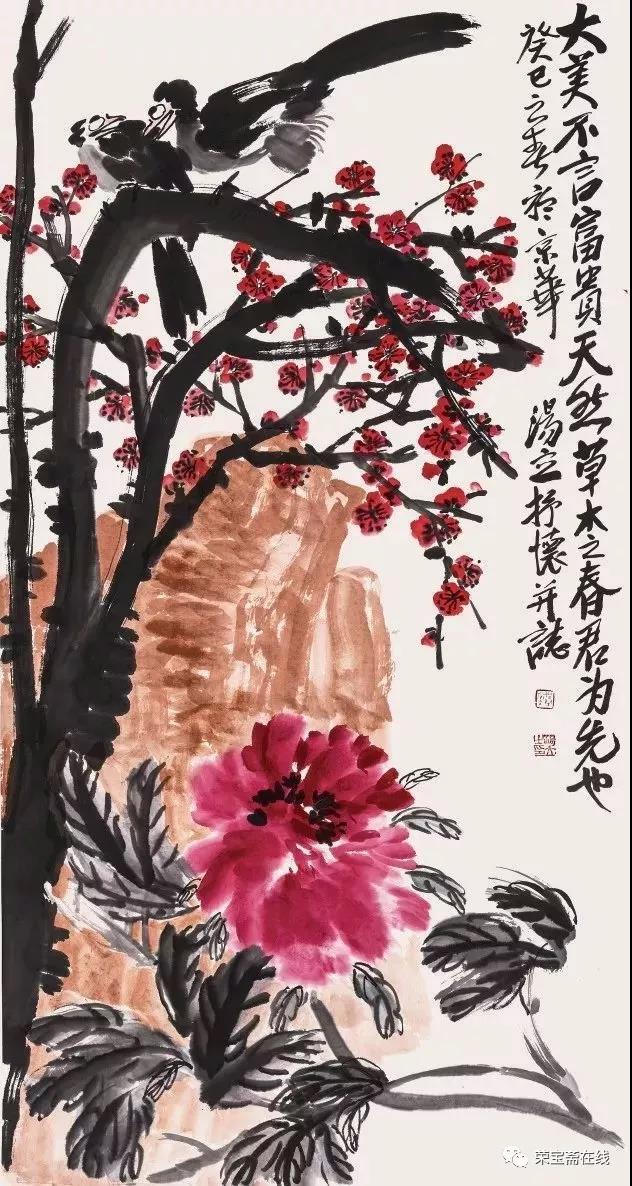 大美不言富貴天然草木之春君为先也
癸巳之春於京華
湯立抒懷并誌
荣宝斋在线